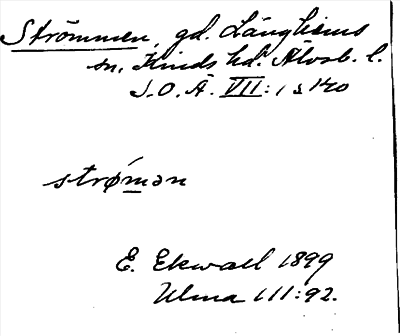 Strömmen, gd. Länghems
sn, Kinds hd. Älvsb. l.
S.O.Ä. VII:1 s 140
strø´mən
E. Ekwall 1899
Ulma 111:92.